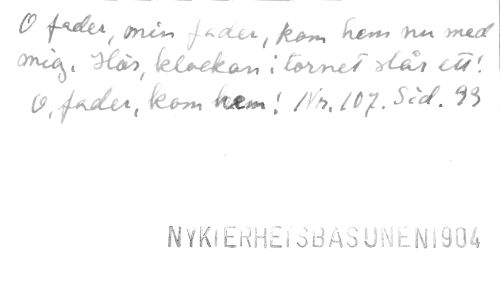 O fader, min fader, kom hem nu med
mig. Hör, klockan i tornet slår ett!
O, fader, kom hem! Nr. 107. Sid. 93
NYKTERHETSBASUNEN 1904